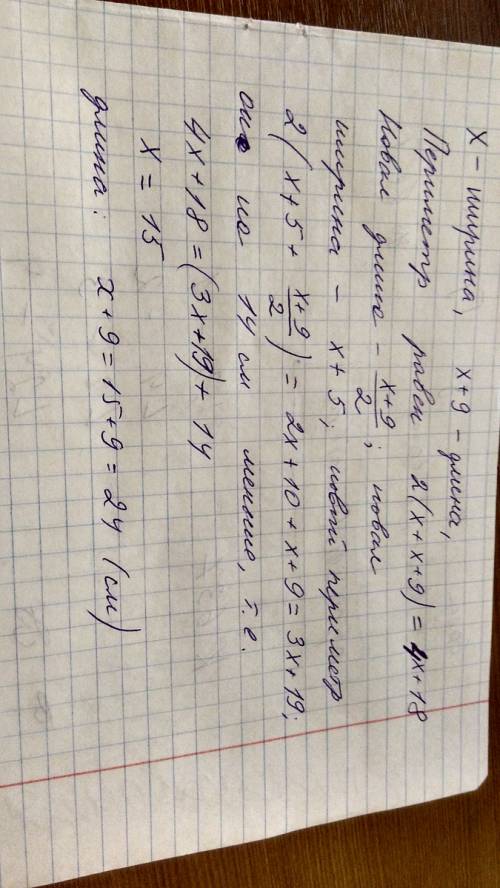 x - ширина, x+9 - длина,
Периметр равен 2(x+x+9)=4x+18
Новая длина - \frac{x+9}{2}; новая
ширина - x+5; новый периметр
2(x+5+\frac{x+9}{2})=2x+10+x+9=3x+19;
он на 14 см меньше, т.е.
4x+18=(3x+19)+14
x=15
длина: x+9=15+9=24 (см)